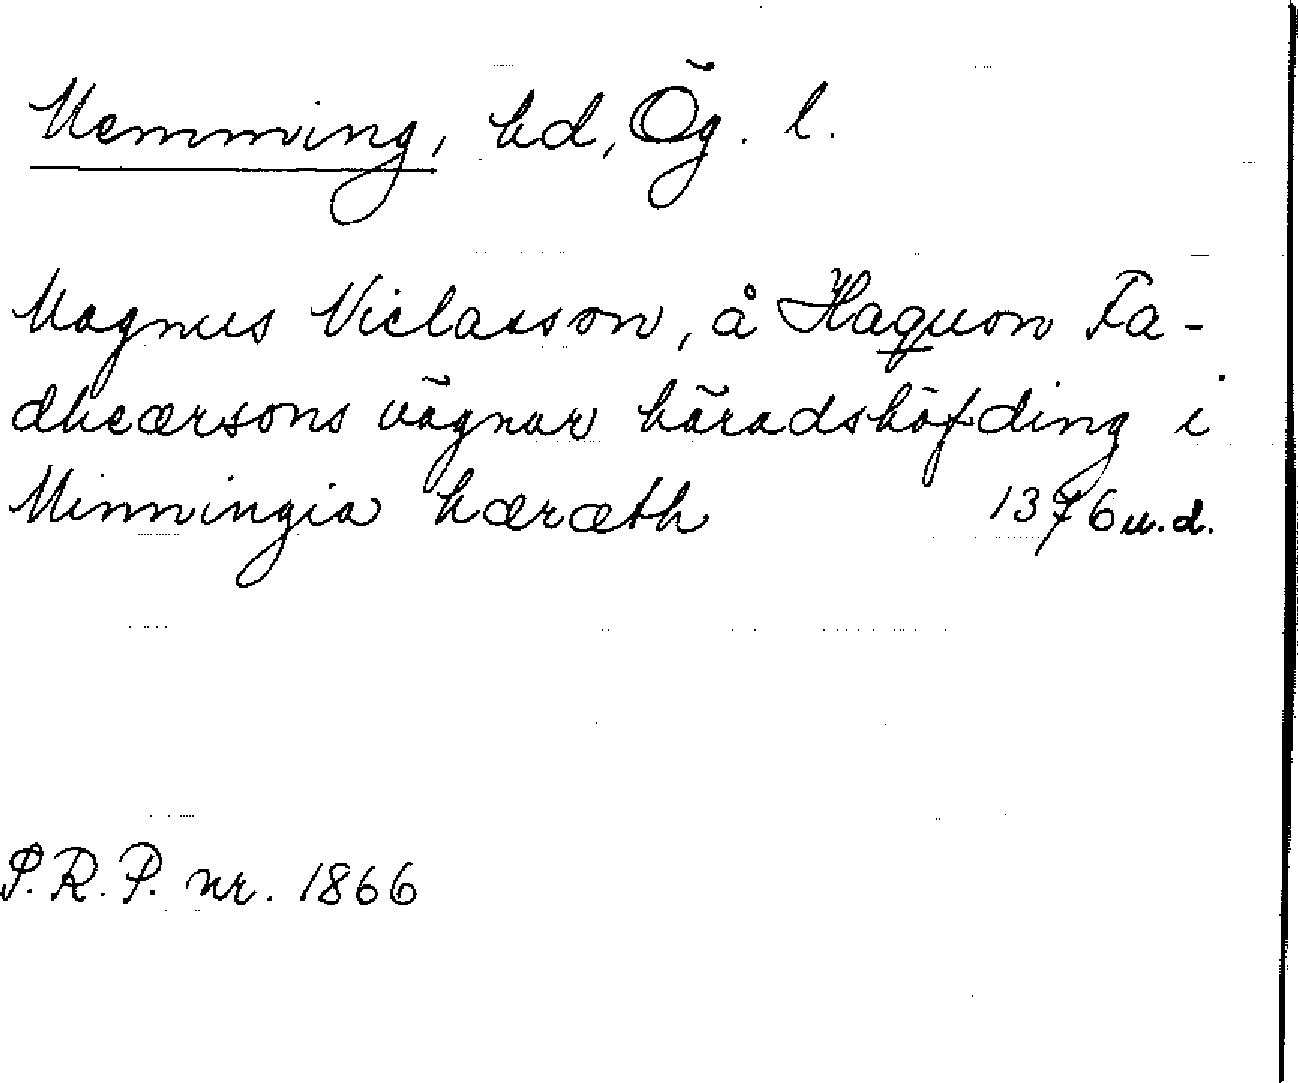 Memming, hd, Ög. l.
Magnus Niclasson, å Haquon Fa-
dheærsons vägnar häradshöfding i
Minningia hæræth 1376 u.d.
S.R.P. nr. 1866